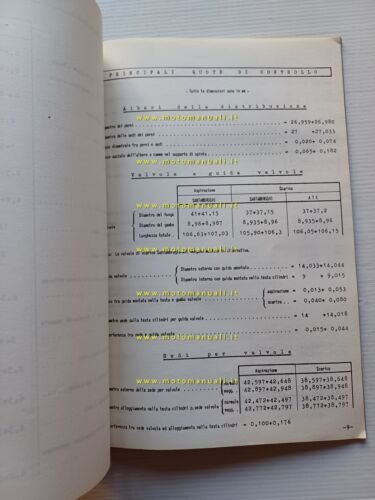 PRINCIPALI QUOTE DI CONTROLLO
- Tutte le dimensioni sono in mm -
Alberi della distribuzione
Diametro dei perni = 26,959÷26,980
diametro delle sedi dei perni = 27 ÷27,033
diametrale fra perni e sedi = 0,020÷ 0,074
assiale dell'albero a camme nel supporto di spinta = 0,065÷ 0,182
Valvole e guida valvole
Aspirazione Scarico
SANTAMBROGIO SANTAMBROGIO A T E
Diametro del fungo 41÷41,15 37÷37,15 37÷37,2
Diametro del gambo 8,96÷8,987 8,935÷8,96 8,935÷8,96
Lunghezza totale 106,63÷107,03 105,90÷106,3 106,05÷106,15
le valvole di scarico
valvole
Diametro esterno della guida valvole = 14,033÷14,044
Diametro interno con guida montata nella testa cilindri = 9 ÷ 9,015
fra guida montata nella testa e gambo valvole
aspirazione = 0,013÷ 0,053
scarico = 0,040÷ 0,080
sede nella testa cilindri per guida valvole = 14 ÷14,018
interferenza fra sede e guida valvole = 0,015÷ 0,044
Sedi per valvole
Aspirazione Scarico
diametro esterno della sede per valvole normale 42,597÷42,648 38,597÷38,648
magg. 42,897÷42,948 38,897÷38,948
diametro alloggiamento nella testa cilindri x sede valvole normale 42,472÷42,497 38,472÷38,497
magg. 42,772÷42,797 38,772÷38,797
interferenza fra sede valvole ed alloggiamento nella testa cilindri = 0,100÷0,176
-9-
www.motomanuali.it
www.motomanuali.it
www.motomanuali.it
www.motomanuali.it
www.motomanuali.it
www.motomanuali.it